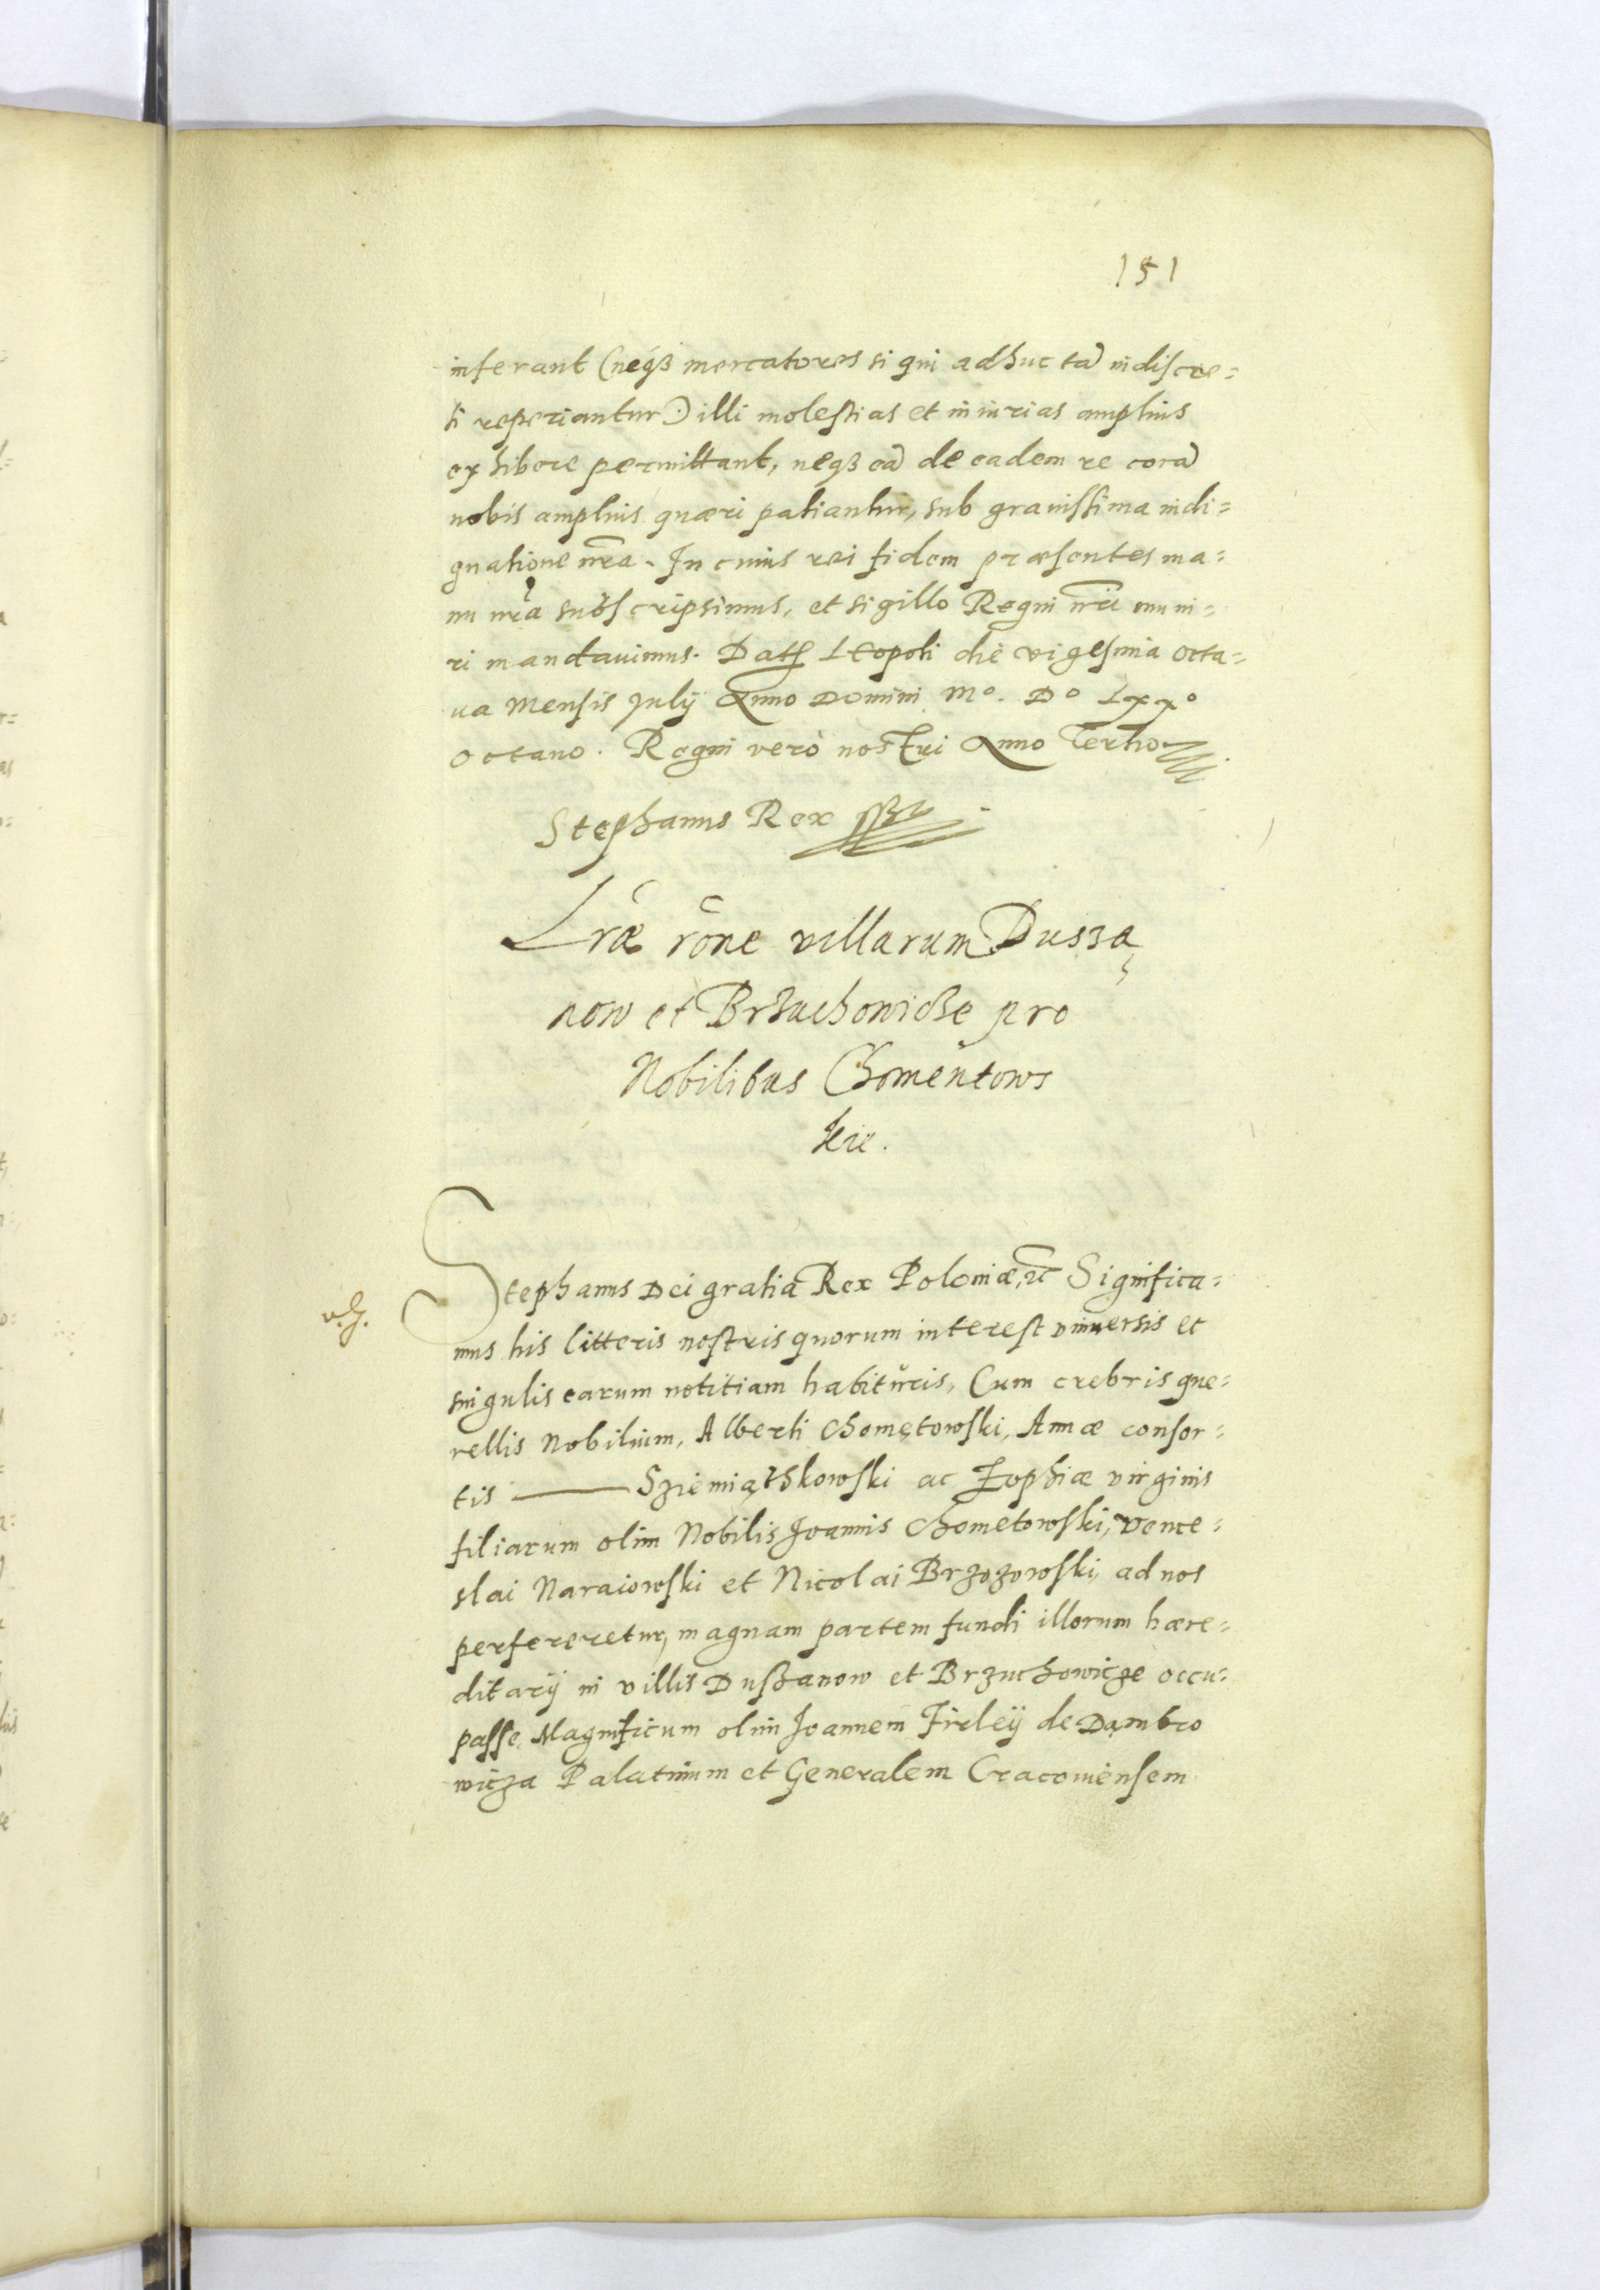 151
inferant (neqꝫ mercatores si qui adhuc tā indiscre=
ti reperiantur) illi molestias et iniurias amplius
exhibere permittant, neqꝫ eā de eadem re corā
nobis amplius quæri patiantur, sub grauissima indi=
gnatione nr̄a. In cuius rei fidem præsentes ma=
nu nr̄a subscripsimus, et sigillo Regni nr̄i muni=
ri mandauimus. Datꝭ Leopoli die vigesima octa=
ua Mensis Julij Anno Domini Mº. Dº Lxxº
octauo. Regni verò nostri Anno Tertio
Stephanus Rex
Lr̄æ rōne villarum Dusza
now et Brzuchowicze pro
Nobilibus Chomentows
kie.
Stephanus Dei gratia Rex Poloniæ, ꝛc̄ Significa=
mus his litteris nostris quorum interest vniuersis et
singulis earum notitiam habituris, Cum crebris que=
rellis Nobilium, Alberti Chomętowski, Annæ consor=
tis — Sziemiąthkowski ac Zophiæ virginis
filiarum olim Nobilis Joannis Chometowski, Vence=
slai Naraiowski et Nicolai Brzozowski, ad nos
perfereretur, magnam partem fundi illorum hære=
ditarij in villis Duszanow et Brzuchowicze occu=
passe, Magnificum olim Joannem Firleij de Dąmbro
wicza Palatinum et Generalem Cracouiensem